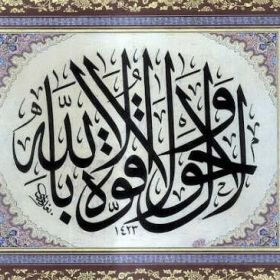 ولا حول ولا قوة إلا بالله
١٤٢٣